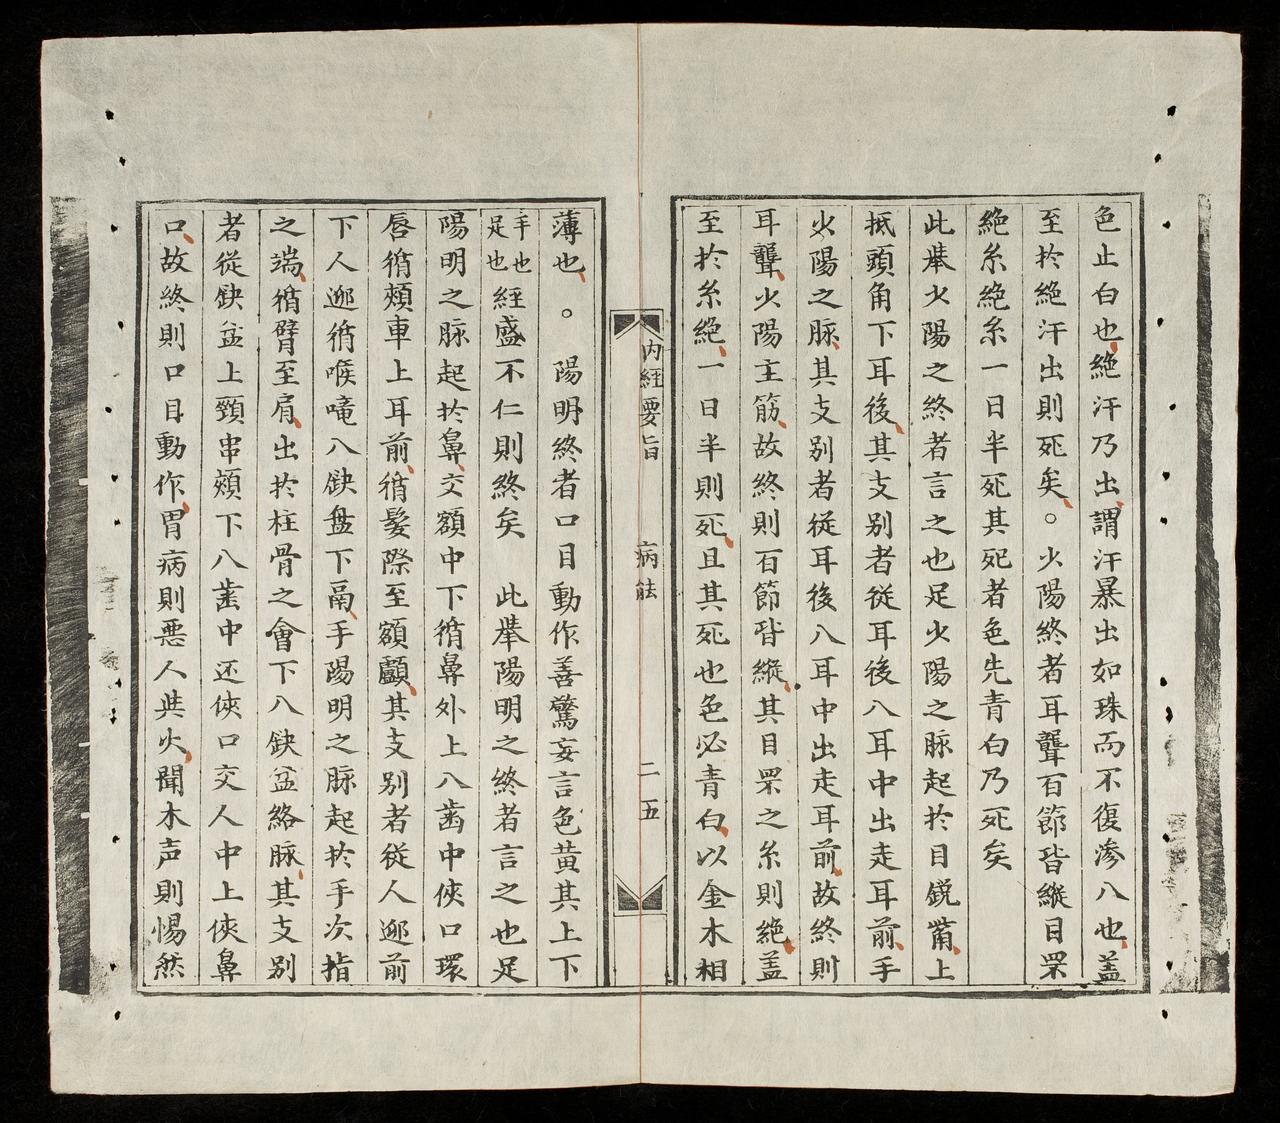 色止白也絶汗乃出謂汗暴出如珠而不復滲八也盖
至於絶汗出則死矣。火陽終者耳聾百節皆縱目睘
絶糸絶糸一日半死其死者色先青白乃死矣
此舉火陽之終者言之也足少陽之脉起於目銳觜上
抵頭角下耳後其支别者從耳後八耳中出走耳前手
火陽之脉其支别者從耳後八耳中出走耳前故終則
耳聾少陽主筋故終則百節皆縱其目睘之糸則絶盖
至於糸絶一日半則死且其死也色必青白以金木相
内經要旨　病能　二五
薄也。陽明終者口目動作善驚妄言色黄其上下
手也足也經盛不仁則終矣　此舉陽明之終者言之也足
陽明之脉起於鼻交額中下循鼻外上八齒中俠口環
唇循頰車上耳前循髮際至額顱其支别者從人迎前
下人迎循喉嚨八缺盤下鬲手陽明之脉起於手次指
之端循臂至肩出於柱骨之會下八缺盆絡脉其支别
者從缺盆上頸串頰下八齒中还俠口交人中上俠鼻
口故終則口目動作胃病則恶人與火聞木声則惕然